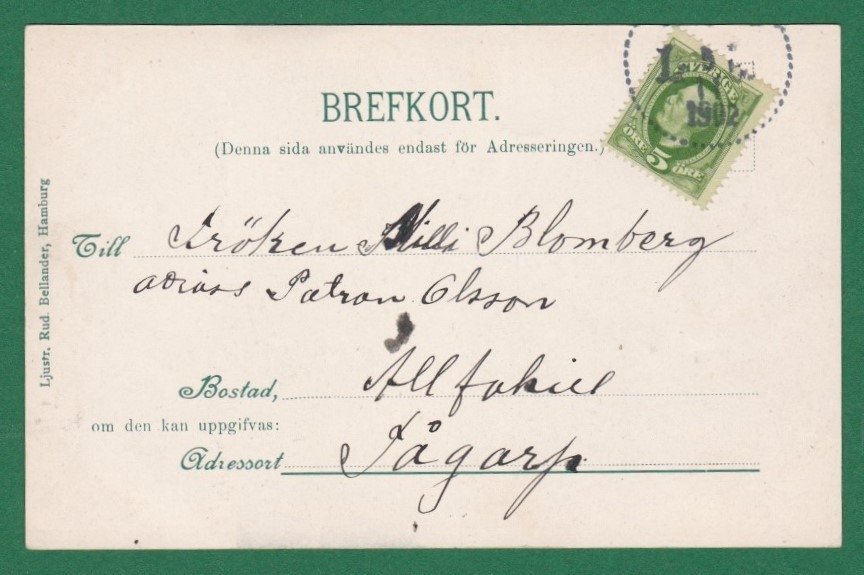 BREFKORT.
(Denna sida användes endast för Adresseringen.)
SVERIGE
ÖRE 5 ÖRE
1902
Till Fröken Milli Blomberg
adress Patron Olsson
Bostad,
om den kan uppgifvas:
Adressort Tågarp
Ljustr. Rud. Bellander, Hamburg